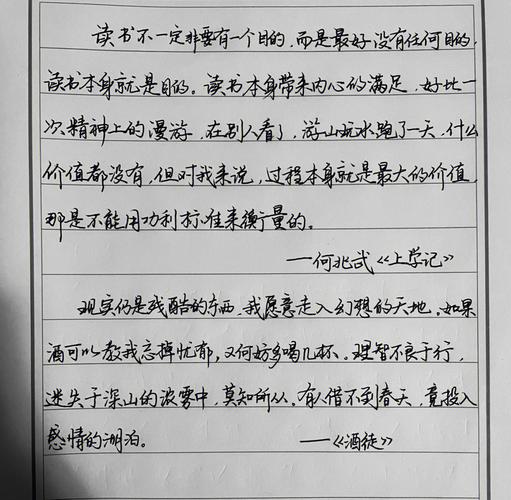 读书不一定非要有一个目的,而是最好没有任何目的,
读书本身就是目的。读书本身带来内心的满足,好比一
次精神上的漫游,在别人看了,游山玩水跑了一天,什么
价值都没有,但对我来说,过程本身就是最大的价值,
那是不能用功利标准来衡量的。
——何兆武《上学记》
现实仍是残酷的东西,我愿意走入幻想的天地,如果
酒可以教我忘掉忧郁,又何妨多喝几杯。理智不良于行,
迷失于深山的浓雾中,莫知所从,有人借不到春天,竟投入
感情的湖泊。
——《酒徒》